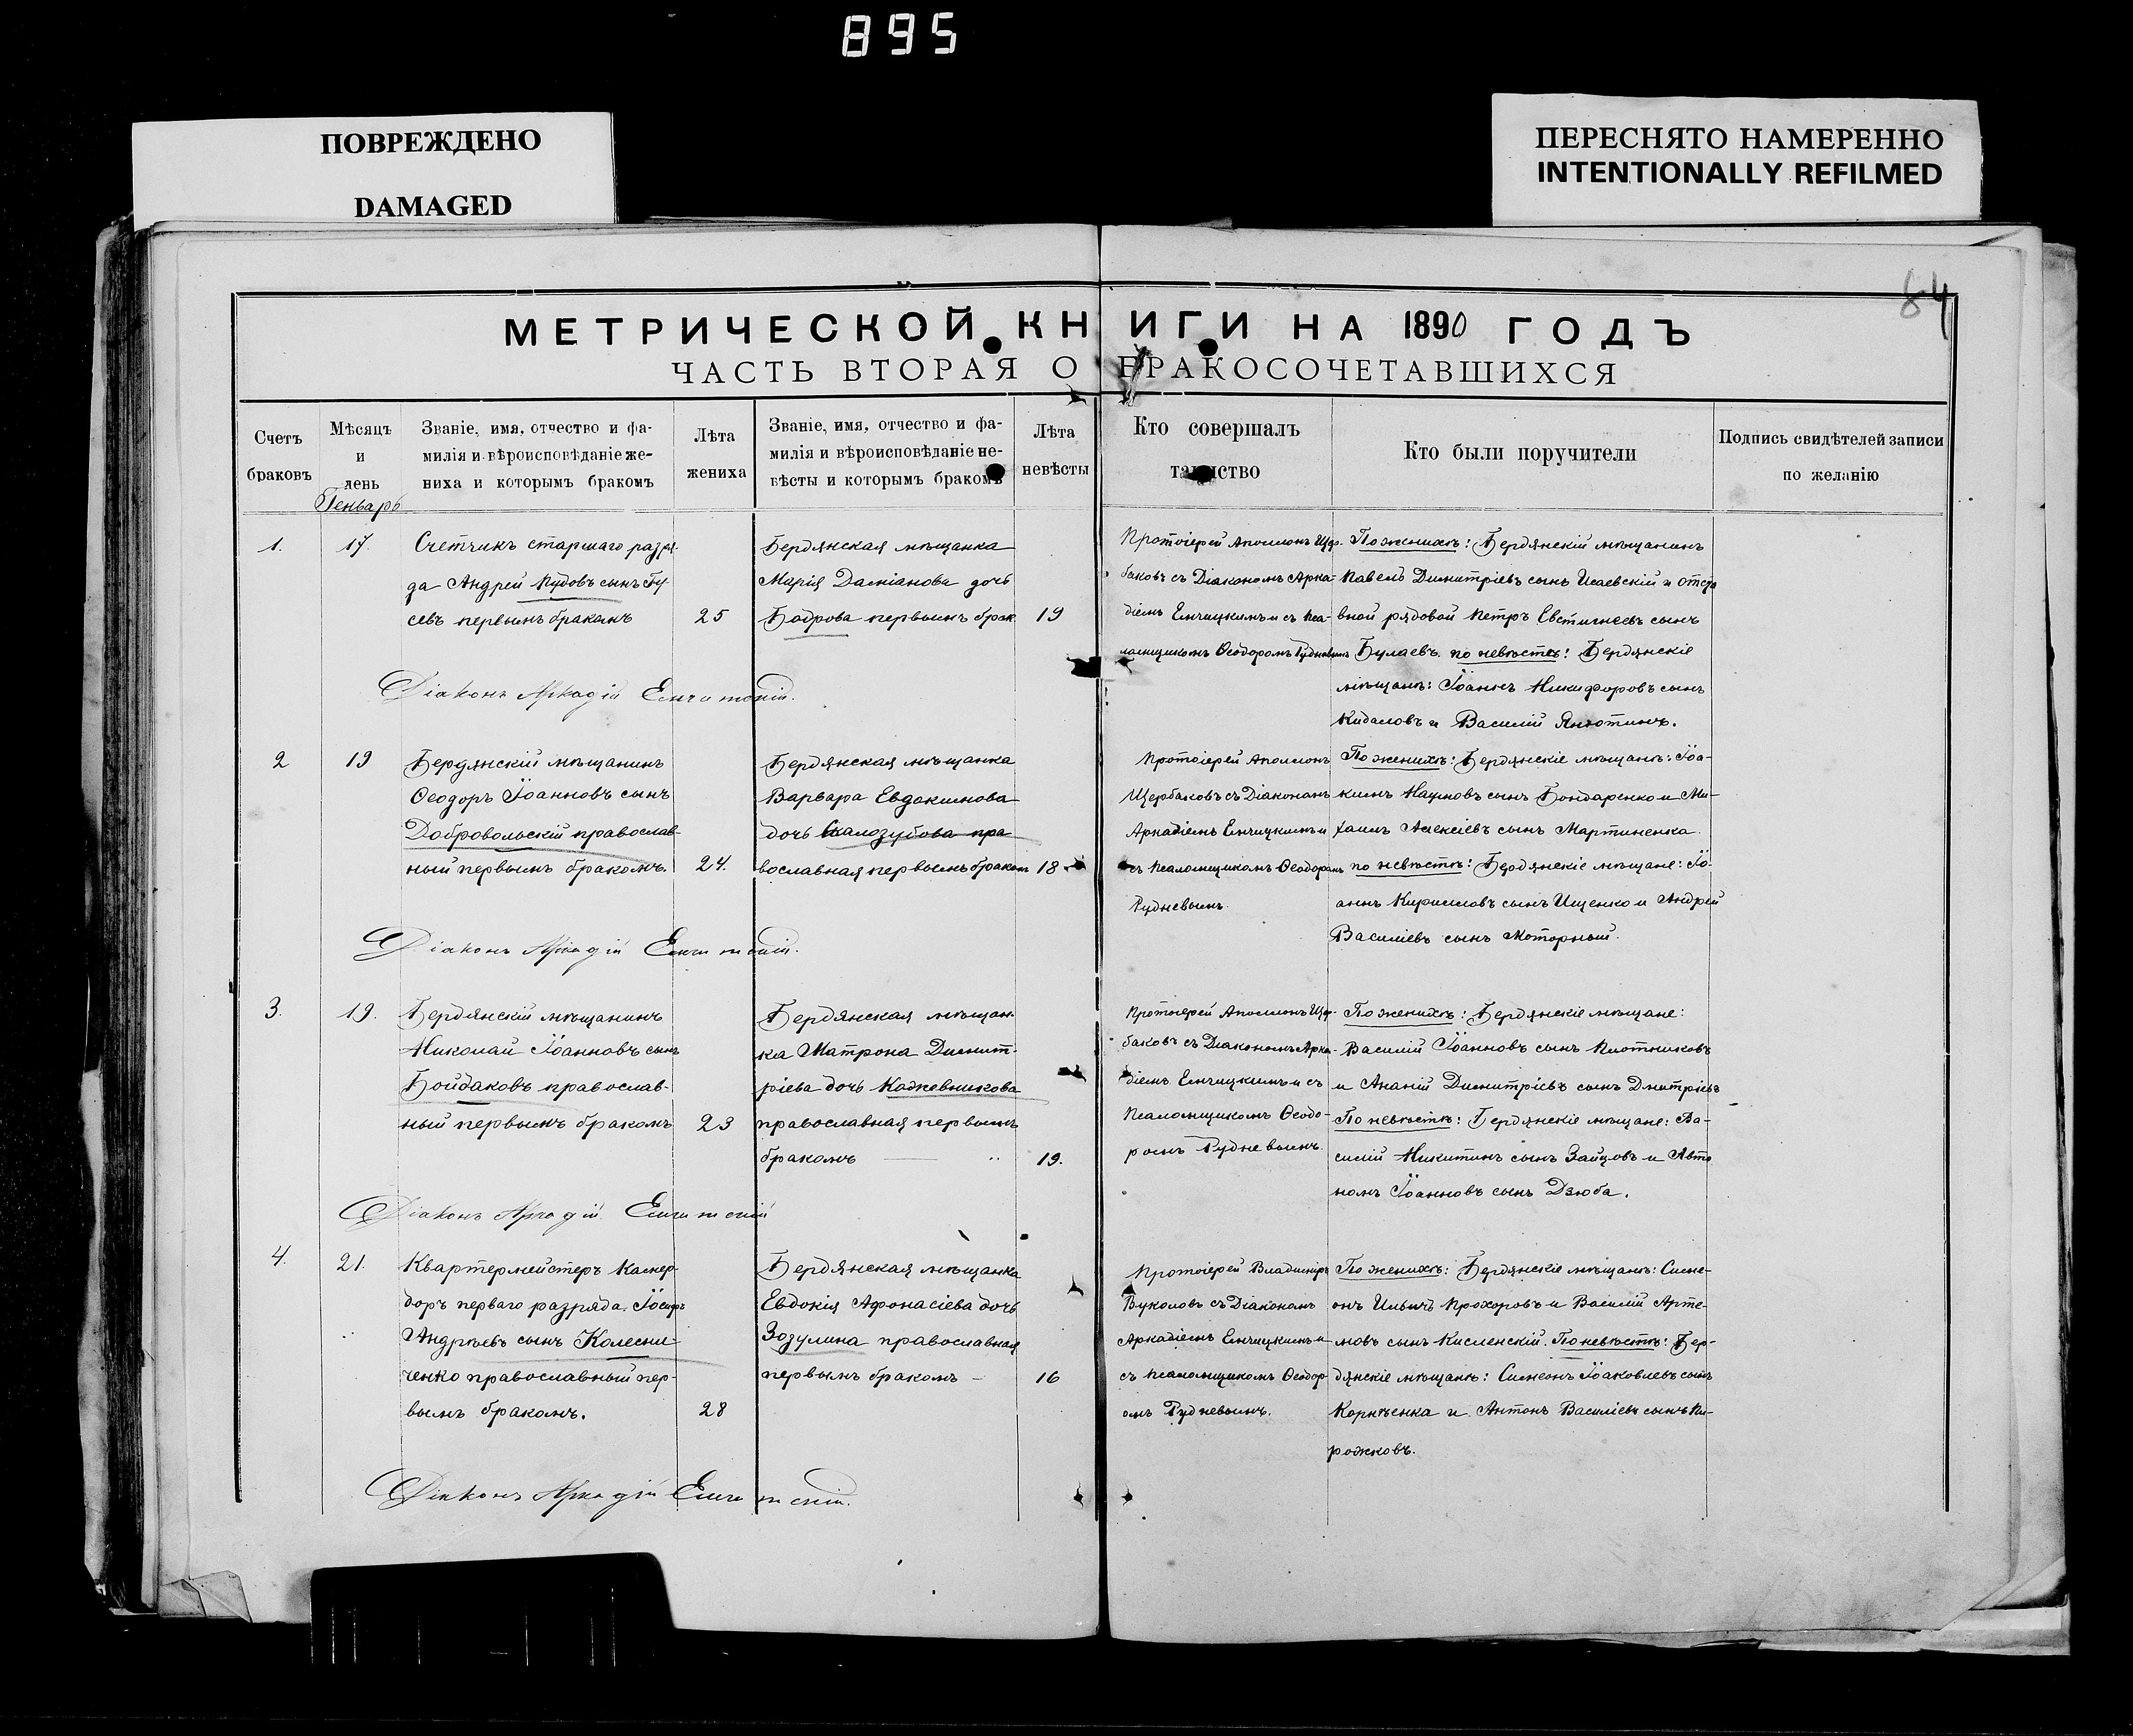 895
ПОВРЕЖДЕНО
DAMAGED
ПЕРЕСНЯТО НАМЕРЕННО
INTENTIONALLY REFILMED
84
МЕТРИЧЕСКОЙ КНИГИ НА 1890 ГОДЪ
ЧАСТЬ ВТОРАЯ О БРАКОСОЧЕТАВШИХСЯ
Счетъ
браковъ
Мѣсяцъ
и
день
Генварь
Званіе, имя, отчество и фа-
милія и вѣроисповѣданіе же-
ниха и которымъ бракомъ
Лѣта
жениха
Званіе, имя, отчество и фа-
милія и вѣроисповѣданіе не-
вѣсты и которымъ бракомъ
Лѣта
невѣсты
Кто совершалъ
таинство
Кто были поручители
Подпись свидѣтелей записи
по желанію
1.
17.
Счетчикъ старшаго разря-
да Андрей Кудовъ сынъ Гу
севъ первымъ бракомъ
25
Бердянская мѣщанка
Марія Даміанова дочь
Бодрова первымъ брак.
19
Протоіерей Аполлонъ Щер-
баковъ съ Діакономъ Арка-
діемъ Емчицкимъ и съ Пса-
ломщикомъ Ѳеодоромъ Рудневымъ
По женихѣ: Бердянскій мѣщанинъ
Павелъ Димитріевъ сынъ Исаевскій и отста
вной рядовой Петръ Евстигнеевъ сынъ
Булаевъ. по невѣстѣ: Бердянскіе
мѣщанѣ: Іоаннъ Никифоровъ сынъ
Кидаловъ и Василій Янютинъ.
Діаконъ Аркадій Емчитскій.
2
19
Бердянскій мѣщанинъ
Ѳеодоръ Іоанновъ сынъ
Добровольскій православ-
ный первымъ бракомъ.
24.
Бердянская мѣщанка
Варвара Евдокимова
дочь Скалозубова пра
вославная первымъ бракомъ
18
Протоіерей Аполлонъ
Щербаковъ съ Діакономъ
Аркадіемъ Емчицкимъ и
съ Псаломщикомъ Ѳеодоромъ
Рудневымъ.
По женихѣ: Бердянскіе мѣщанѣ: Іоа-
кимъ Наумовъ сынъ Бондаренко и Ми-
хаилъ Алексіевъ сынъ Мартиненка.
по невѣстѣ: Бердянскіе мѣщане: Іо-
аннъ Кирилловъ сынъ Ищенко и Андрей
Василіевъ сынъ Моторный.
Діаконъ Аркадій Емчитскій.
3.
19.
Бердянскій мѣщанинъ
Николай Іоанновъ сынъ
Бойдаковъ православ-
ный первымъ бракомъ
23
Бердянская мѣщан-
ка Матрона Димит-
ріева дочь Кожевникова
православная первымъ
бракомъ
19.
Протоіерей Аполлонъ Щер-
баковъ съ Діакономъ Арка-
діемъ Емчицкимъ и съ
Псаломщикомъ Ѳеодо-
ромъ Рудневымъ.
По женихѣ: Бердянскіе мѣщане:
Василій Іоанновъ сынъ Плотниковъ
и Ананій Димитріевъ сынъ Дмитріевъ
По невѣстѣ: Бердянскіе мѣщане: Ва-
силій Никитинъ сынъ Зайцовъ и Авто
номъ Іоанновъ сынъ Дзюба.
Діаконъ Аркадій Емчитскій
4.
21.
Квартермейстеръ Камер-
доръ перваго разряда. Іосифъ
Андрѣевъ сынъ Колесни-
ченко православный пер-
вымъ бракомъ.
28
Бердянская мѣщанка
Евдокія Афонасіева дочь
Зозулина православная
первымъ бракомъ —
16
Протоіерей Владимиръ
Вуколовъ съ Діакономъ
Аркадіемъ Емчицкимъ и
съ Псаломщикомъ Ѳеодор-
омъ Рудневымъ.
По женихѣ: Бердянскіе мѣщанѣ: Симе-
онъ Ильичъ Прохоровъ и Василій Арте-
мовъ сынъ Кисленскій. По невѣстѣ: Бер-
дянскіе мѣщанѣ: Симеонъ Іоаковлевъ сынъ
Корнѣенка и Антонъ Василіевъ сынъ Пи-
рожковъ.
Діаконъ Аркадій Емчитскій.